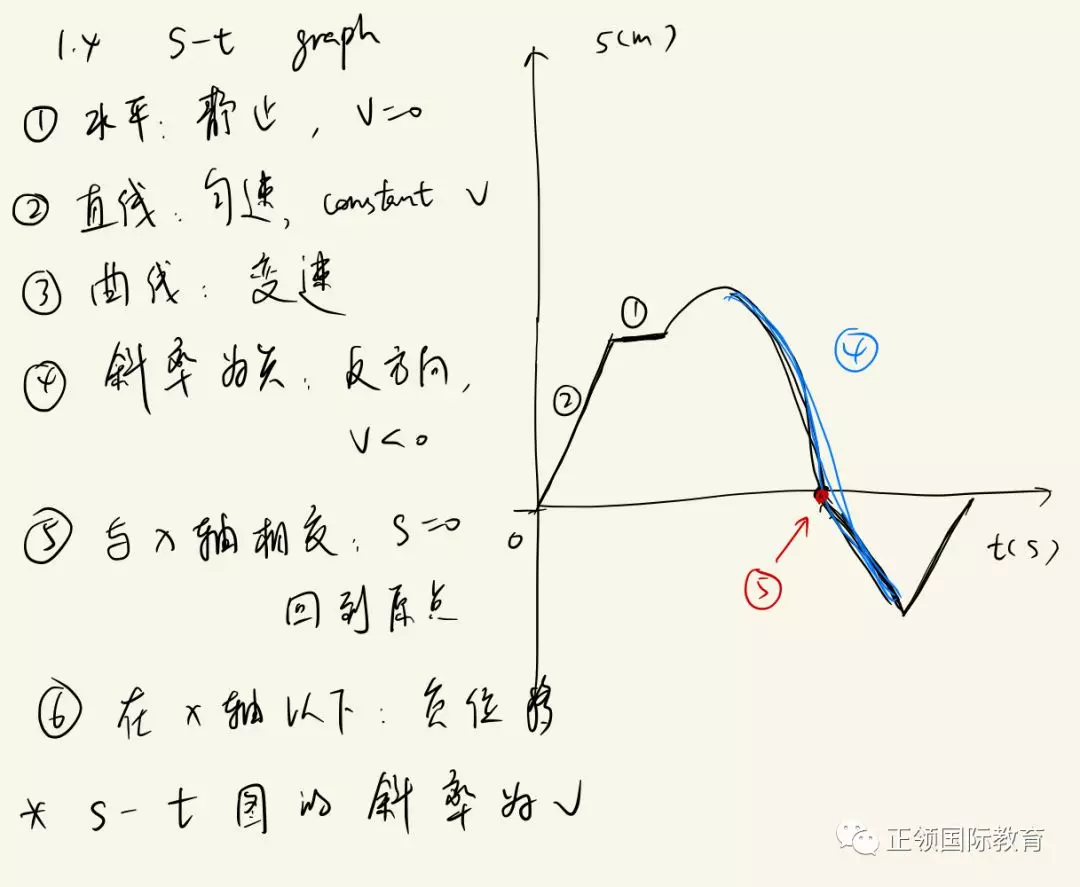 1.4 s-t graph
① 水平：静止，v=0
② 直线：匀速，constant v
③ 曲线：变速
④ 斜率为负：反方向，
v<0
⑤ 与x轴相交：s=0
回到原点
⑥ 在x轴以下：负位移
* s-t图的斜率为v
s(m)
①
②
④
⑤
0
t(s)
正领国际教育